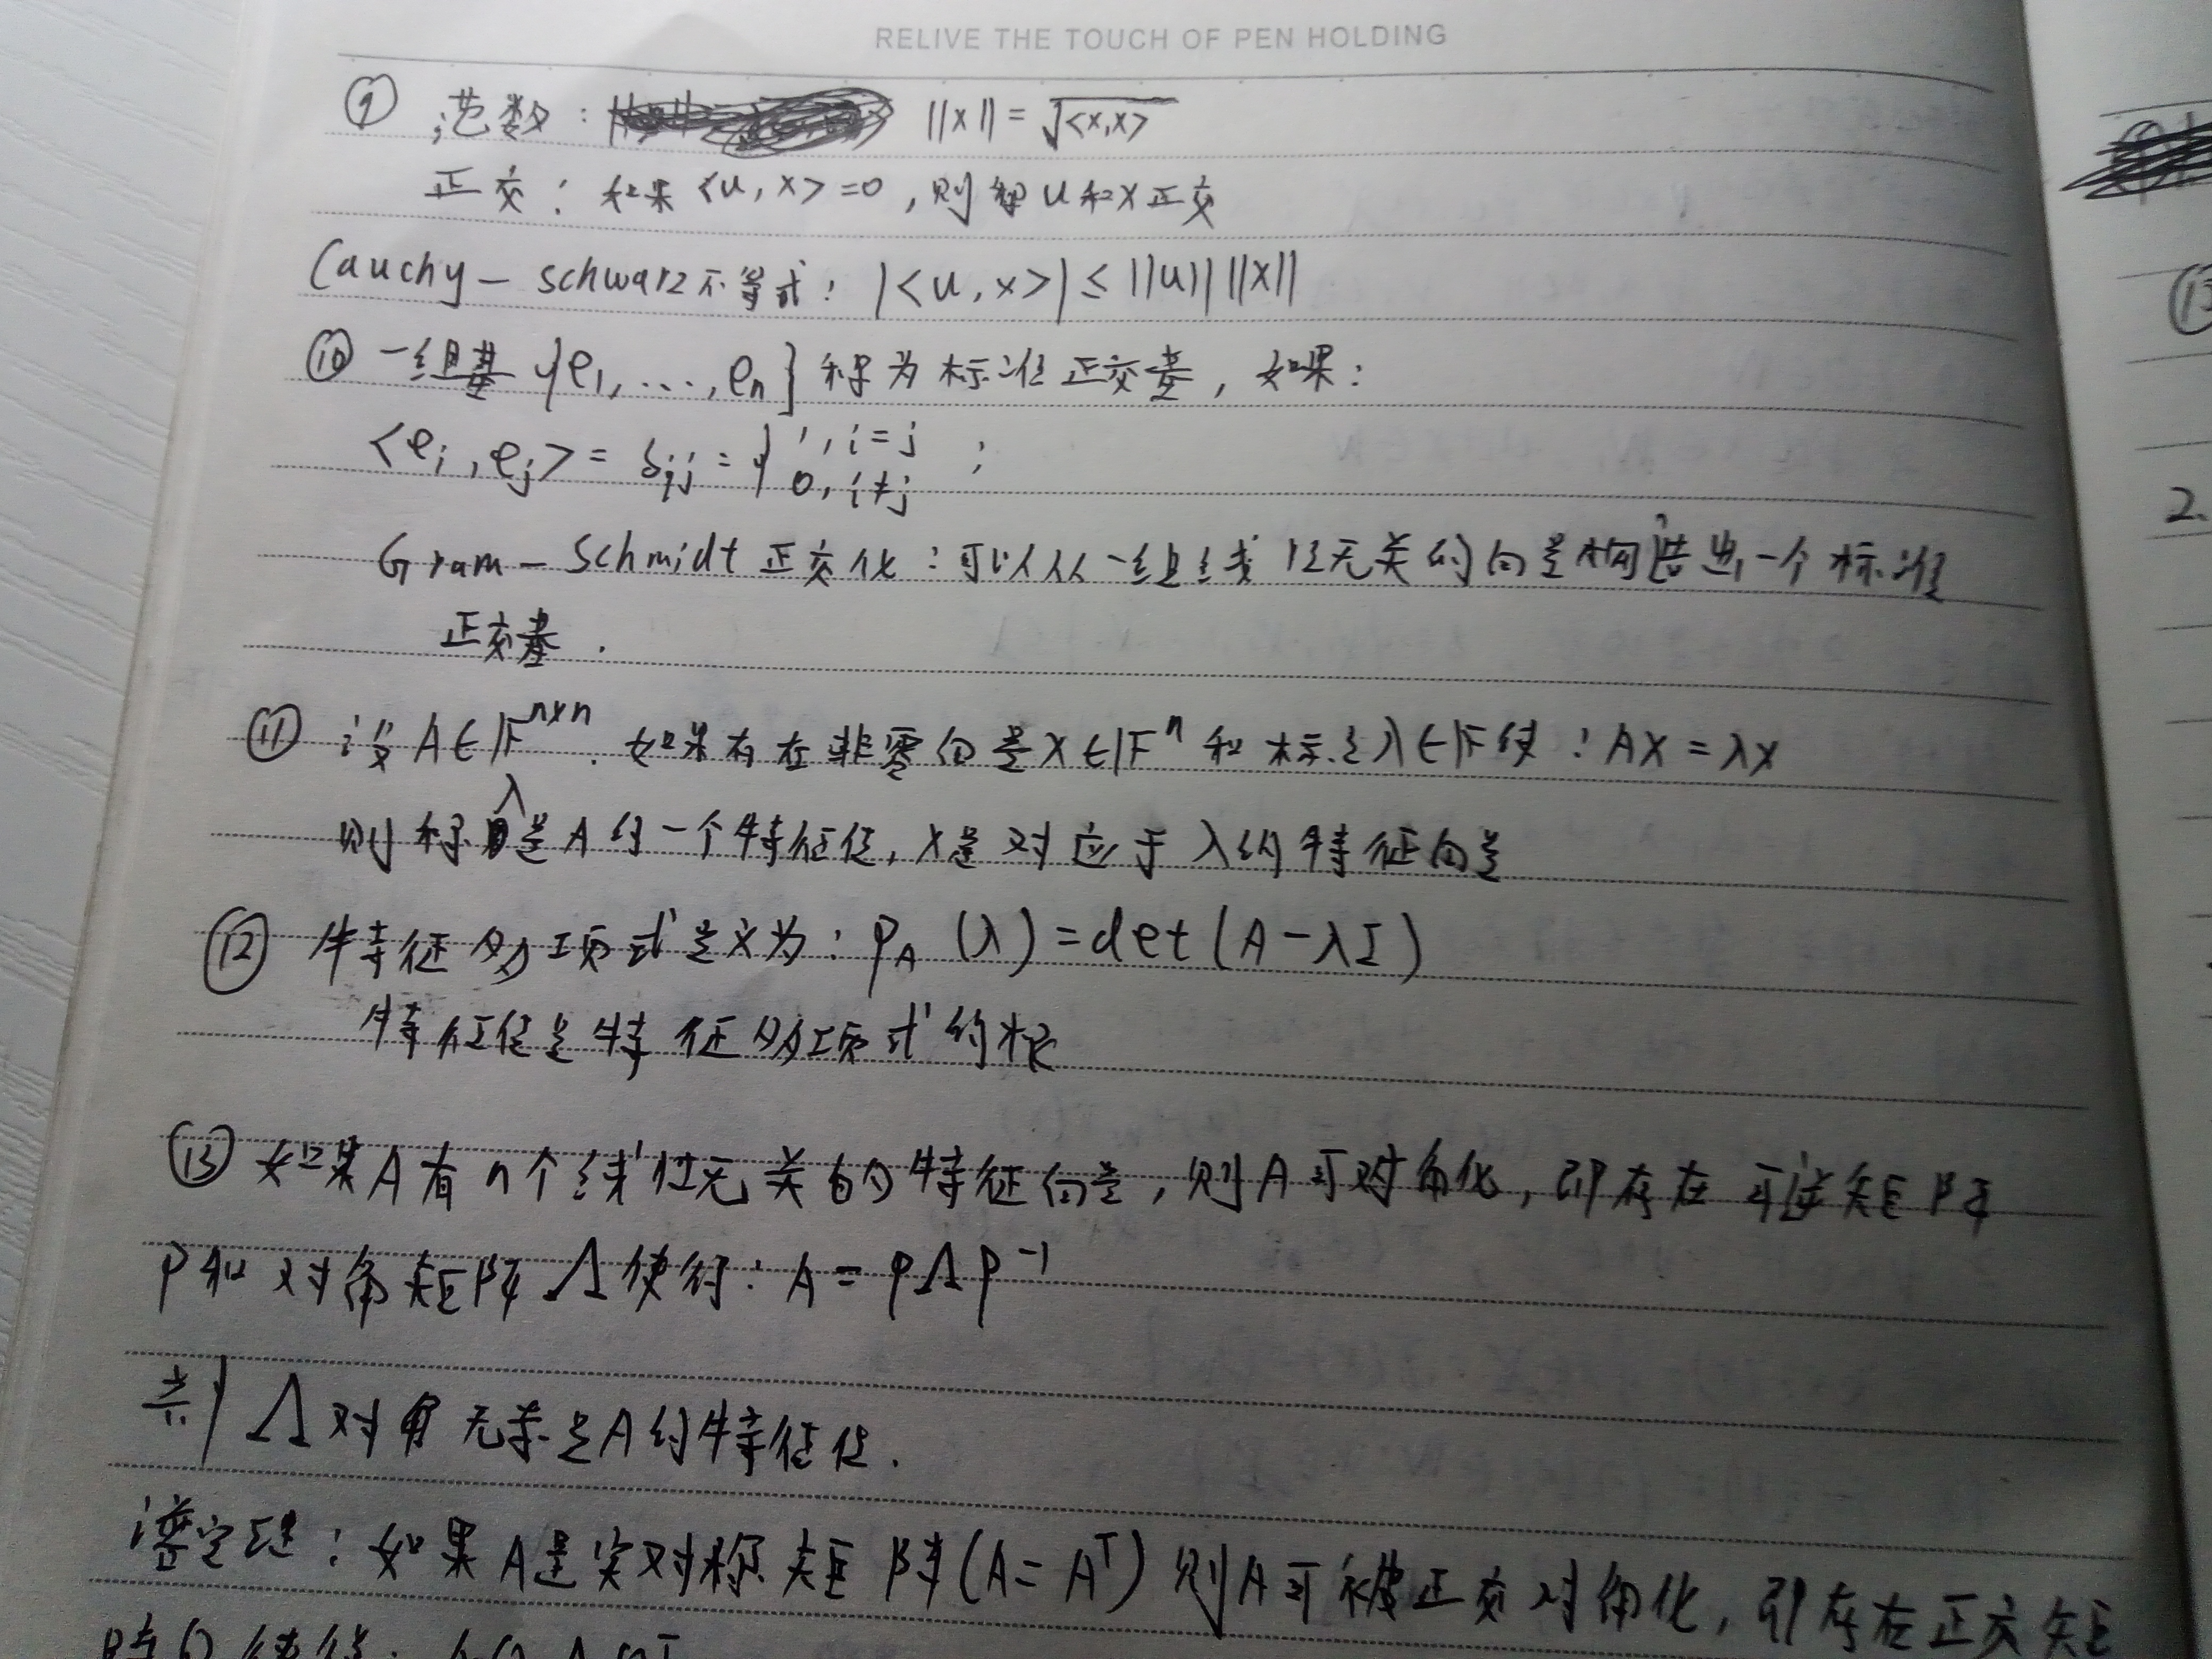 RELIVE THE TOUCH OF PEN HOLDING
⑨ 范数: ||x|| = √<x,x>
正交: 如果 <u, x> = 0, 则称 u 和 x 正交
Cauchy - schwarz 不等式: |<u, x>| ≤ ||u|| ||x||
⑩ 一组基 {e₁, ..., eₙ} 称为标准正交基, 如果:
<eᵢ, eⱼ> = δᵢⱼ = { 1, i = j ;
0, i ≠ j
Gram - Schmidt 正交化: 可以从一组线性无关的向量构造出一个标准
正交基.
⑪ 设 A ∈ 𝔽ⁿˣⁿ. 如果存在非零向量 x ∈ 𝔽ⁿ 和标量 λ ∈ 𝔽 使: Ax = λx
则称 λ 是 A 的一个特征值, x 是对应于 λ 的特征向量
⑫ 特征多项式定义为: p_A (λ) = det (A - λI)
特征值是特征多项式的根
⑬ 如果 A 有 n 个线性无关的特征向量, 则 A 可对角化, 即存在可逆矩阵
P 和对角矩阵 Λ 使得: A = PΛP⁻¹
Λ 对角元素是 A 的特征值.
谱定理: 如果 A 是实对称矩阵 (A = Aᵀ) 则 A 可被正交对角化, 即存在正交矩
阵 Q 使得:
2.